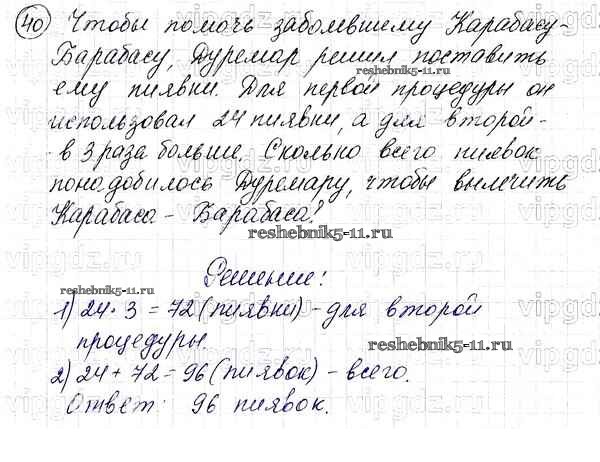 40 Чтобы помочь заболевшему Карабасу-
Барабасу, Дуремар решил поставить
reshebnik5-11.ru
ему пиявки. Для первой процедуры он
использовал 24 пиявки, а для второй -
- в 3 раза больше. Сколько всего пиявок
понадобилось Дуремару, чтобы вылечить
Карабаса - Барабаса?
reshebnik5-11.ru
Решение:
reshebnik5-11.ru
1) 24 · 3 = 72 (пиявки) - для второй
процедуры.
reshebnik5-11.ru
2) 24 + 72 = 96 (пиявок) - всего.
Ответ: 96 пиявок.